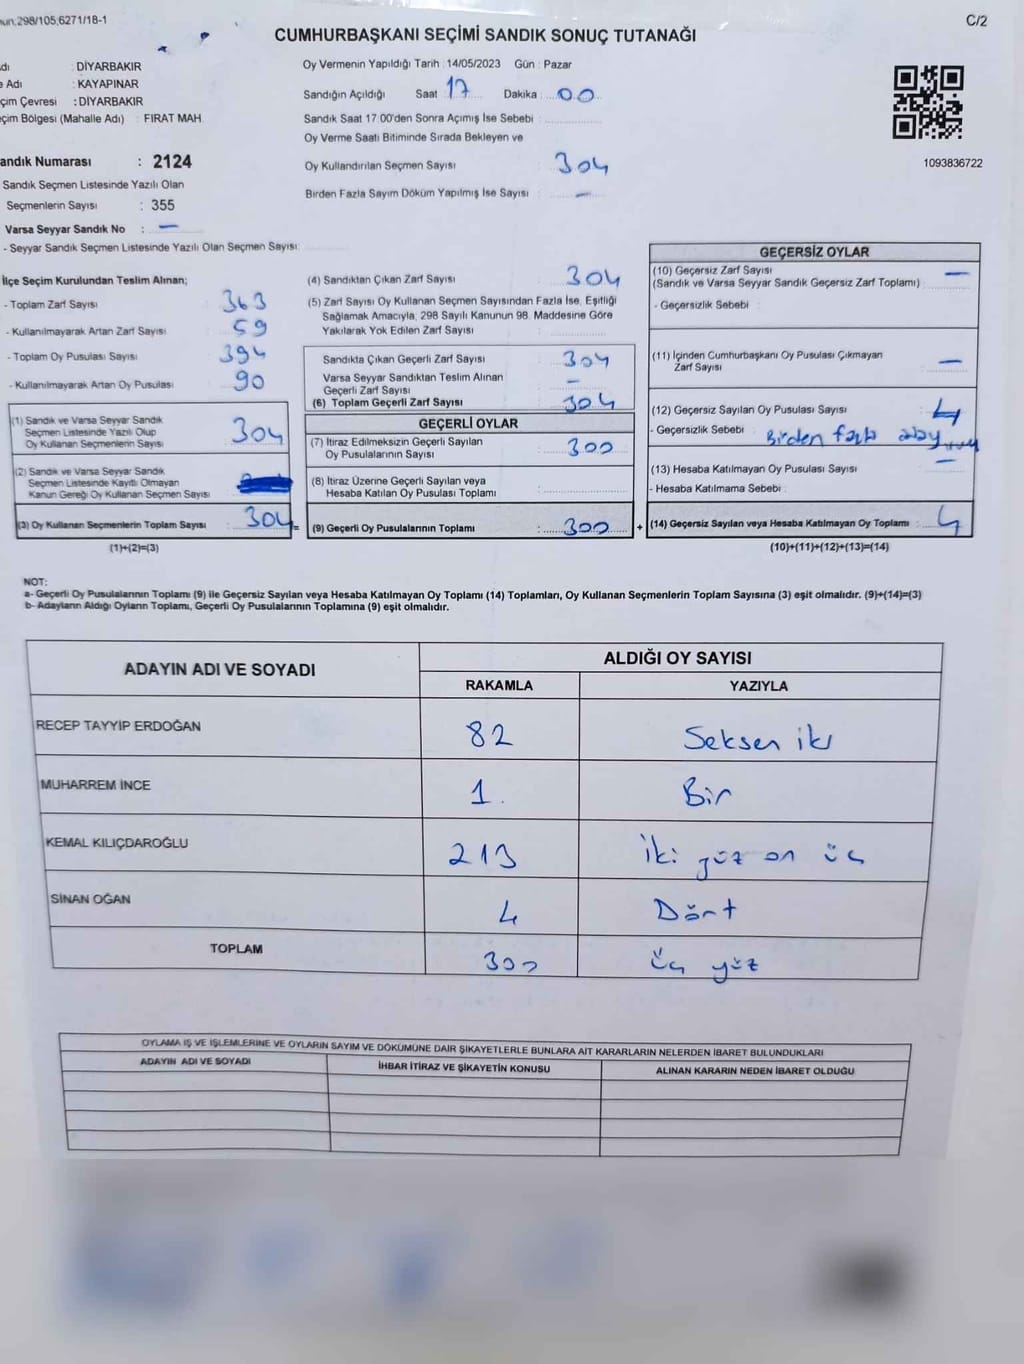 nun.298/105,6271/18-1
C/2
CUMHURBAŞKANI SEÇİMİ SANDIK SONUÇ TUTANAĞI
dı : DİYARBAKIR
e Adı : KAYAPINAR
çim Çevresi : DİYARBAKIR
çim Bölgesi (Mahalle Adı) FIRAT MAH.
andık Numarası : 2124
Sandık Seçmen Listesinde Yazılı Olan
Seçmenlerin Sayısı : 355
Varsa Seyyar Sandık No : —
- Seyyar Sandık Seçmen Listesinde Yazılı Olan Seçmen Sayısı:
Oy Vermenin Yapıldığı Tarih : 14/05/2023 Gün : Pazar
Sandığın Açıldığı Saat 17 Dakika : 00
Sandık Saat 17.00'den Sonra Açımış İse Sebebi :
Oy Verme Saati Bitiminde Sırada Bekleyen ve
Oy Kullandırılan Seçmen Sayısı 304
Birden Fazla Sayım Döküm Yapılmış İse Sayısı : —
1093836722
İlçe Seçim Kurulundan Teslim Alınan;
- Toplam Zarf Sayısı 363
- Kullanılmayarak Artan Zarf Sayısı 59
- Toplam Oy Pusulası Sayısı 394
- Kullanılmayarak Artan Oy Pusulası 90
(1) Sandık ve Varsa Seyyar Sandık
Seçmen Listesinde Yazılı Olup
Oy Kullanan Seçmenlerin Sayısı 304
(2) Sandık ve Varsa Seyyar Sandık
Seçmen Listesinde Kayıtlı Olmayan
Kanun Gereği Oy Kullanan Seçmen Sayısı
(3) Oy Kullanan Seçmenlerin Toplam Sayısı 304 =
(1)+(2)=(3)
(4) Sandıktan Çıkan Zarf Sayısı 304
(5) Zarf Sayısı Oy Kullanan Seçmen Sayısından Fazla İse, Eşitliği
Sağlamak Amacıyla, 298 Sayılı Kanunun 98. Maddesine Göre
Yakılarak Yok Edilen Zarf Sayısı :
Sandıkta Çıkan Geçerli Zarf Sayısı 304
Varsa Seyyar Sandıktan Teslim Alınan
Geçerli Zarf Sayısı —
(6) Toplam Geçerli Zarf Sayısı 304
GEÇERLİ OYLAR
(7) İtiraz Edilmeksizin Geçerli Sayılan
Oy Pusulalarının Sayısı : 300
(8) İtiraz Üzerine Geçerli Sayılan veya
Hesaba Katılan Oy Pusulası Toplamı :
(9) Geçerli Oy Pusulalarının Toplamı : 300 +
GEÇERSİZ OYLAR
(10) Geçersiz Zarf Sayısı —
(Sandık ve Varsa Seyyar Sandık Geçersiz Zarf Toplamı) :
- Geçersizlik Sebebi :
(11) İçinden Cumhurbaşkanı Oy Pusulası Çıkmayan
Zarf Sayısı : —
(12) Geçersiz Sayılan Oy Pusulası Sayısı : 4
- Geçersizlik Sebebi : Birden fazla
(13) Hesaba Katılmayan Oy Pusulası Sayısı : —
- Hesaba Katılmama Sebebi :
(14) Geçersiz Sayılan veya Hesaba Katılmayan Oy Toplamı : 4
(10)+(11)+(12)+(13)=(14)
NOT:
a- Geçerli Oy Pusulalarının Toplamı (9) ile Geçersiz Sayılan veya Hesaba Katılmayan Oy Toplamı (14) Toplamları, Oy Kullanan Seçmenlerin Toplam Sayısına (3) eşit olmalıdır. (9)+(14)=(3)
b- Adayların Aldığı Oyların Toplamı, Geçerli Oy Pusulalarının Toplamına (9) eşit olmalıdır.
ADAYIN ADI VE SOYADI
ALDIĞI OY SAYISI
RAKAMLA YAZIYLA
RECEP TAYYİP ERDOĞAN 82 Seksen iki
MUHARREM İNCE 1. Bir
KEMAL KILIÇDAROĞLU 213 İki yüz on üç
SİNAN OĞAN 4 Dört
TOPLAM 300 üç yüz
OYLAMA İŞ VE İŞLEMLERİNE VE OYLARIN SAYIM VE DÖKÜMÜNE DAİR ŞİKAYETLERLE BUNLARA AİT KARARLARIN NELERDEN İBARET BULUNDUKLARI
ADAYIN ADI VE SOYADI İHBAR İTİRAZ VE ŞİKAYETİN KONUSU ALINAN KARARIN NEDEN İBARET OLDUĞU